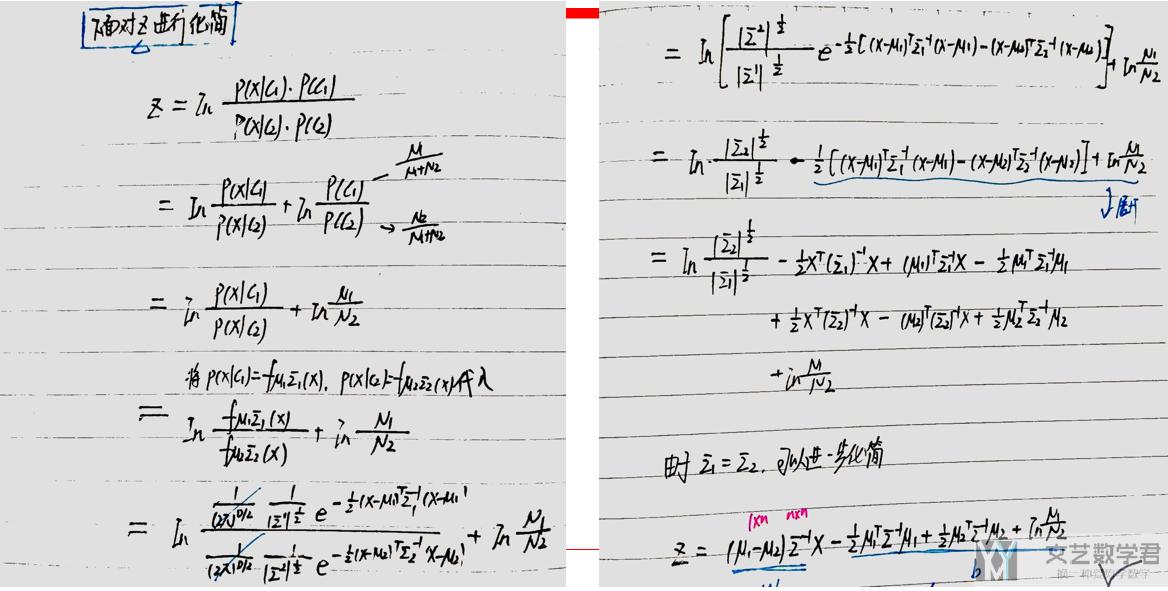 下面对z进行化简
z = ln P(x|C₁)·P(C₁) / P(x|C₂)·P(C₂)
= ln P(x|C₁) / P(x|C₂) + ln P(C₁) / P(C₂) → N₁ / N₁+N₂ → N₂ / N₁+N₂
= ln P(x|C₁) / P(x|C₂) + ln N₁/N₂
将 P(x|C₁)=fμ₁Σ₁(x), P(x|C₂)=fμ₂Σ₂(x)代入
= ln fμ₁Σ₁(x) / fμ₂Σ₂(x) + ln N₁/N₂
= ln [1/(2π)^{D/2} 1/|Σ¹|^{1/2} e^{-½(x-μ₁)ᵀΣ₁⁻¹(x-μ₁)}] / [1/(2π)^{D/2} 1/|Σ²|^{1/2} e^{-½(x-μ₂)ᵀΣ₂⁻¹(x-μ₂)}] + ln N₁/N₂
= ln [ |Σ²|^{1/2} / |Σ¹|^{1/2} e^{-½[(x-μ₁)ᵀΣ₁⁻¹(x-μ₁)-(x-μ₂)ᵀΣ₂⁻¹(x-μ₂)]} ] + ln N₁/N₂
= ln |Σ₂|^{1/2} / |Σ₁|^{1/2} - ½[(x-μ₁)ᵀΣ₁⁻¹(x-μ₁)-(x-μ₂)ᵀΣ₂⁻¹(x-μ₂)] + ln N₁/N₂
↓展开
= ln |Σ₂|^{1/2} / |Σ₁|^{1/2} - ½xᵀ(Σ₁)⁻¹x + (μ₁)ᵀΣ₁⁻¹x - ½μ₁ᵀΣ₁⁻¹μ₁
+ ½xᵀ(Σ₂)⁻¹x - (μ₂)ᵀ(Σ₂)⁻¹x + ½μ₂ᵀΣ₂⁻¹μ₂
+ ln N₁/N₂
由于 Σ₁=Σ₂, 可以进一步化简
1×n n×n
z = (μ₁-μ₂)Σ⁻¹x - ½μ₁ᵀΣ⁻¹μ₁ + ½μ₂ᵀΣ⁻¹μ₂ + ln N₁/N₂
b
文艺数学君